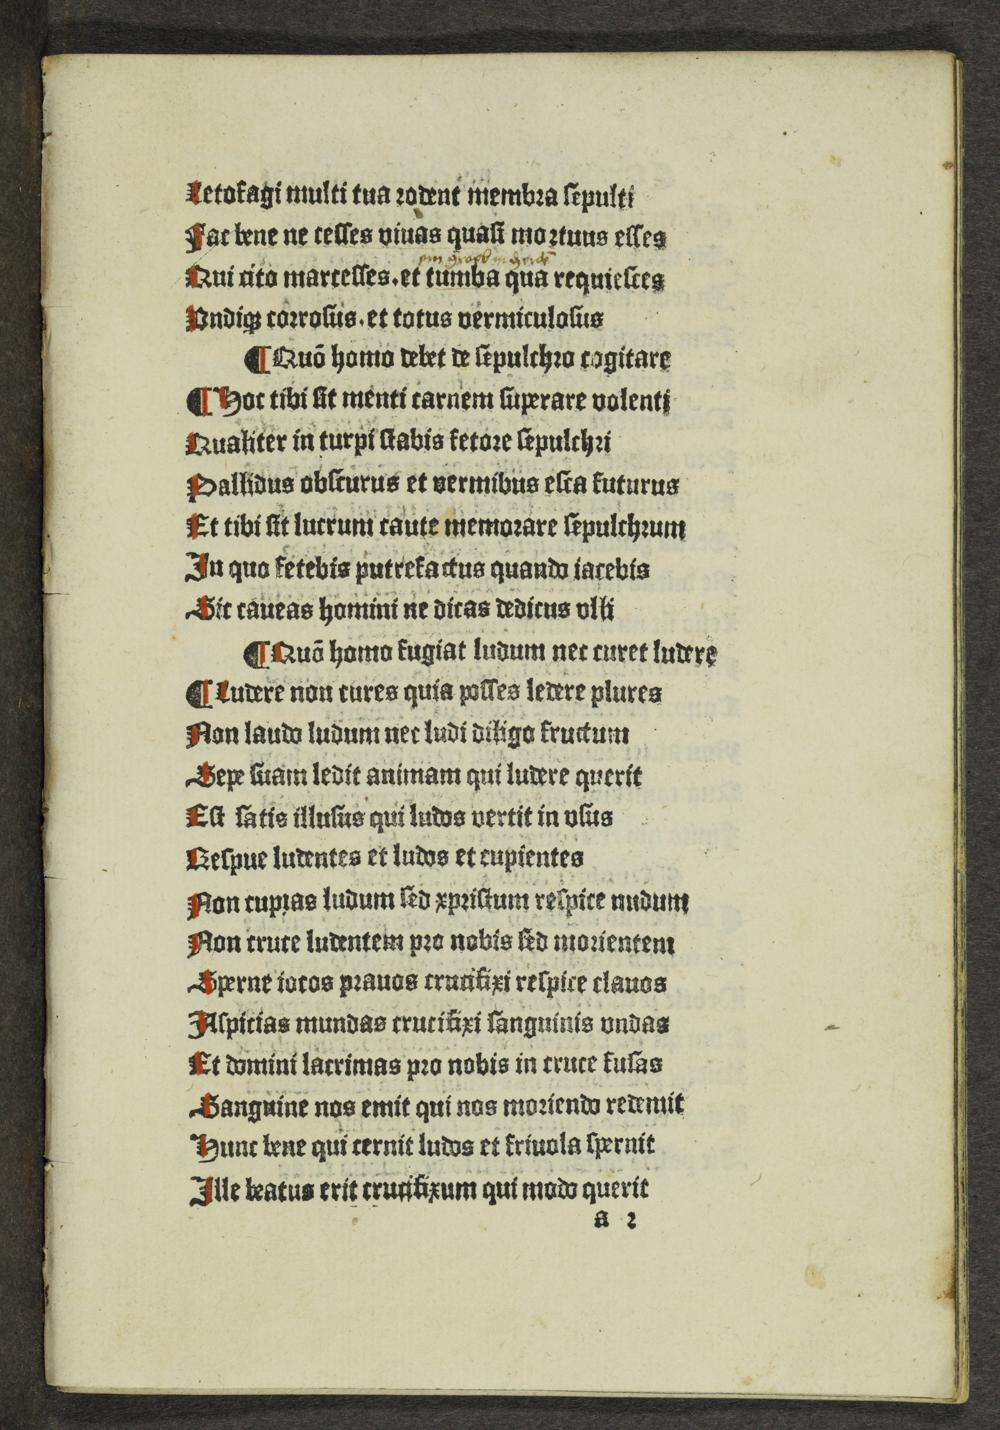 Letofagi multi tua rodent membra sepulti
Fac bene ne cesses viuas quasi mortuus esses
Qui cito marcesses.et tumba qua requiesces
Vndiqꝫ corrosus.et totus vermiculosus
¶ Quō homo debet de sepulchro cogitare
¶ Hoc tibi sit menti carnem superare volenti
Qualiter in turpi stabis fetore sepulchri
Pallidus obscurus et vermibus esca futurus
Et tibi sit lucrum caute memorare sepulchrum
In quo fetebis putrefactus quando iacebis
Sic caueas homini ne dicas dedicus vlli
¶ Quō homo fugiat ludum nec curet ludere
¶ Ludere non cures quia posses ledere plures
Non laudo ludum nec ludi diligo fructum
Sepe suam ledit animam qui ludere querit
Est satis illusus qui ludos vertit in vsus
Respue ludentes et ludos et cupientes
Non cupias ludum sed xpristum respice nudum
Non cruce ludentem pro nobis sed morientem
Sperne iocos prauos crucifixi respice clauos
Aspicias mundas crucifixi sanguinis vndas
Et domini lacrimas pro nobis in cruce fusas
Sanguine nos emit qui nos moriendo redemit
Hunc bene qui cernit ludos et friuola spernit
Ille beatus erit crucifixum qui modo querit
a 2